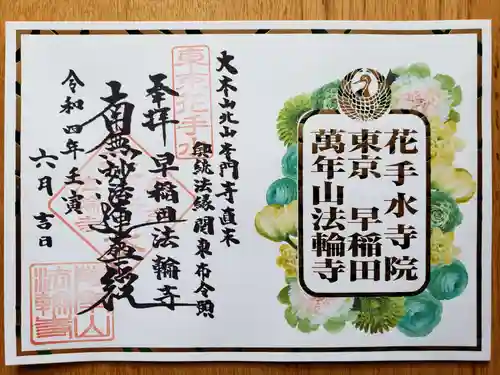 花手水寺院
東京 早稲田
萬年山法輪寺
大本山北山本門寺直末
興統法縁関東布令頭
東京花手水
奉拝 早稲田法輪寺
南無妙法蓮華経
令和四年壬寅
六月吉日